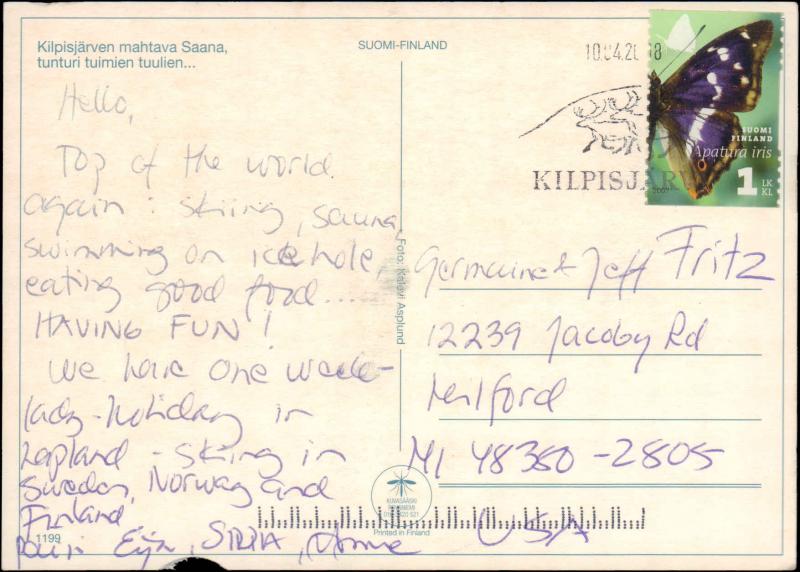 Kilpisjärven mahtava Saana,
tunturi tuimien tuulien...
SUOMI-FINLAND
10.04.20 8
KILPISJÄR
SUOMI
FINLAND
Apatura iris
1 LK
KL
2007
Hello,
Top of the world
again : skiing, sauna,
swimming on icehole,
eating good food....
HAVING FUN!
We have one week-
lady-holiday in
Lapland - skiing in
Sweden, Norway and
Finland
Eija, SIRPA,
Foto: Kalevi Asplund
Germaine & Jeff Fritz
12239 Jacoby Rd
Milford
MI 48380-2805
USA
KUVASÄÄSKI
ROVANIEMI
Printed in Finland
1199